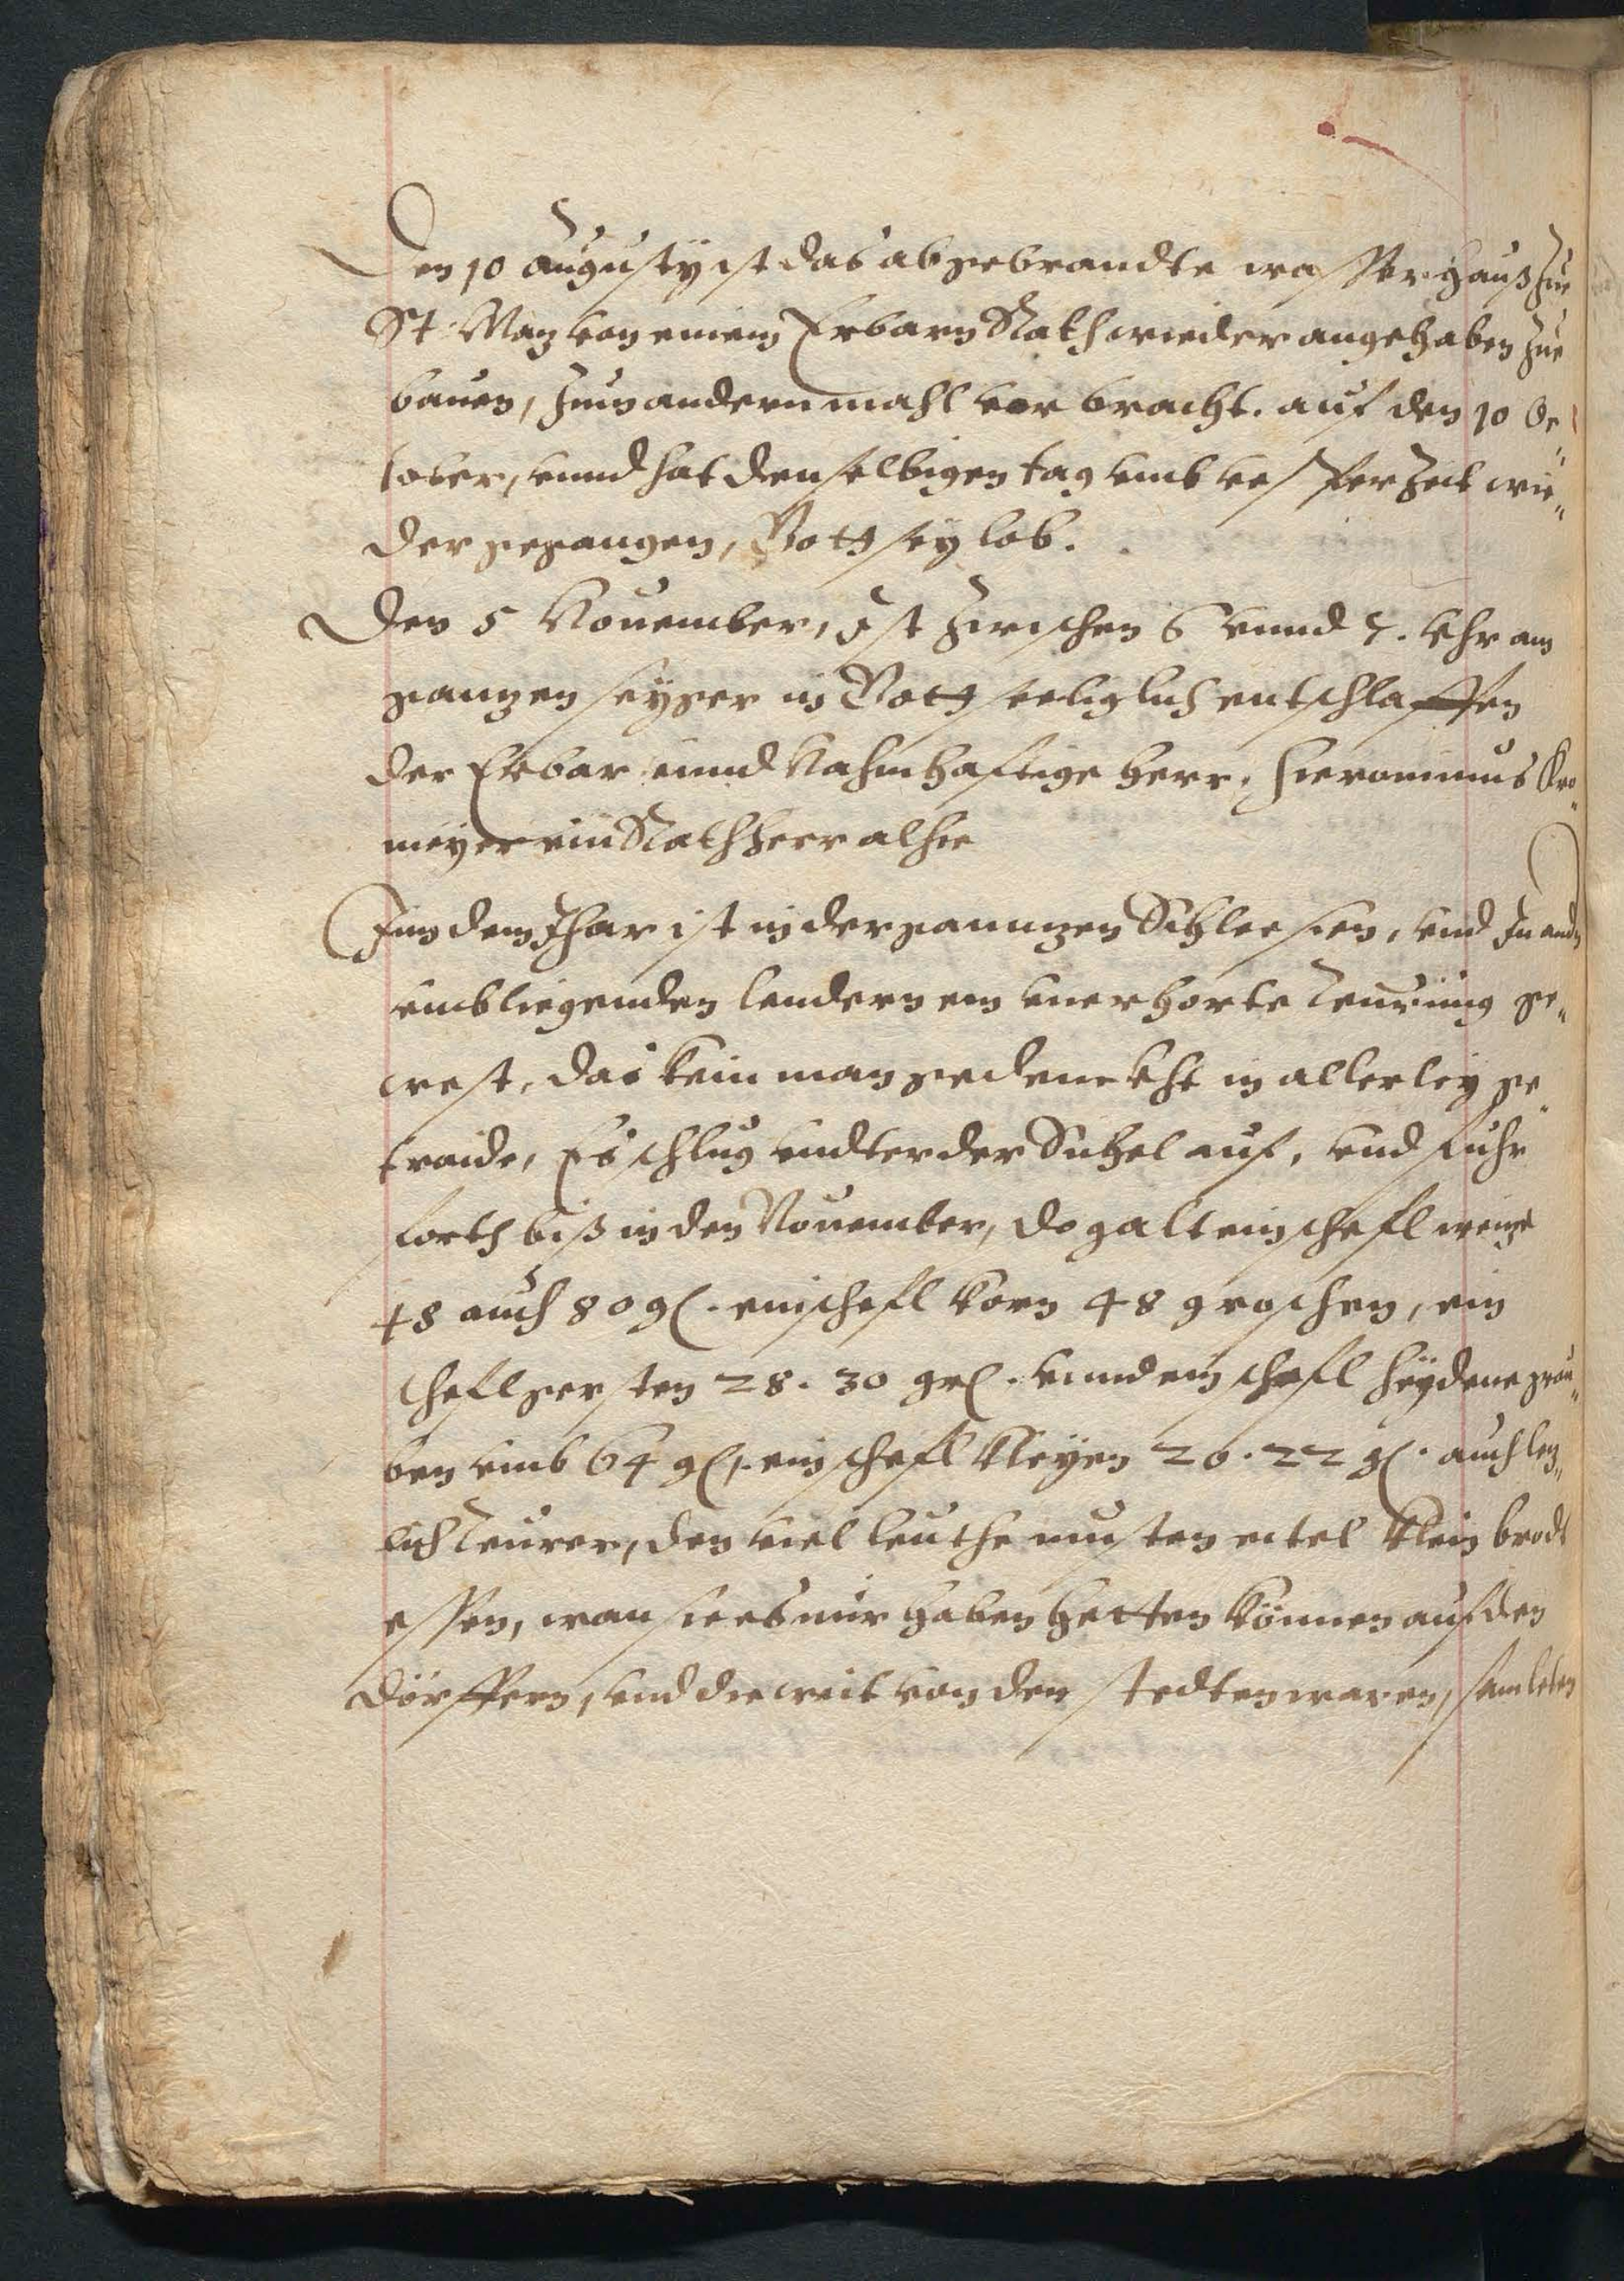 Den 10 Augusty ist das abgebrandte wasserhauß zue
St. Maz von einem Erbarn Rath wieder angehaben zue
bauen, zum andern mahl vor bracht. auf den 10 Oc„
tober, unnd hat denselbigen tag umb vesper Zeit wie„
der gegangen, Gott sey lob.
Den 5 Nouember, Ist zwischen 6 unnd 7. Uhr am
gantzen seyger in Gott seeliglich entschlaffen
der Erbar unnd Nahmhaftige Herr, Hieronimus Kro„
meyer ein Rathherr alhie
Inn dem Jhar ist in der ganntzen Schlesien, und In andn
umbliegenden lendern ein unerhorte Teurung ge„
west, das kein man gedenckht in allerley ge„
traide, Es schlug undter der Sichel auf, und fuhr
forth biß in den Nouember, do galt ein schefl weitze
78 auch 80 gl. ein schefl korn 48 groschen, ein
schefl gersten 28. 30 grl. unnd ein schefl heydene grau„
ben umb 64 gl, ein schefl Kleyen 20. 22 gl. auch letz„
lich Teurer, den viel leuthe musten eitel Klein brodt
essen, wan sie es nur haben hetten können auf den
dörffern, und die weit von den stedten waren, samleten